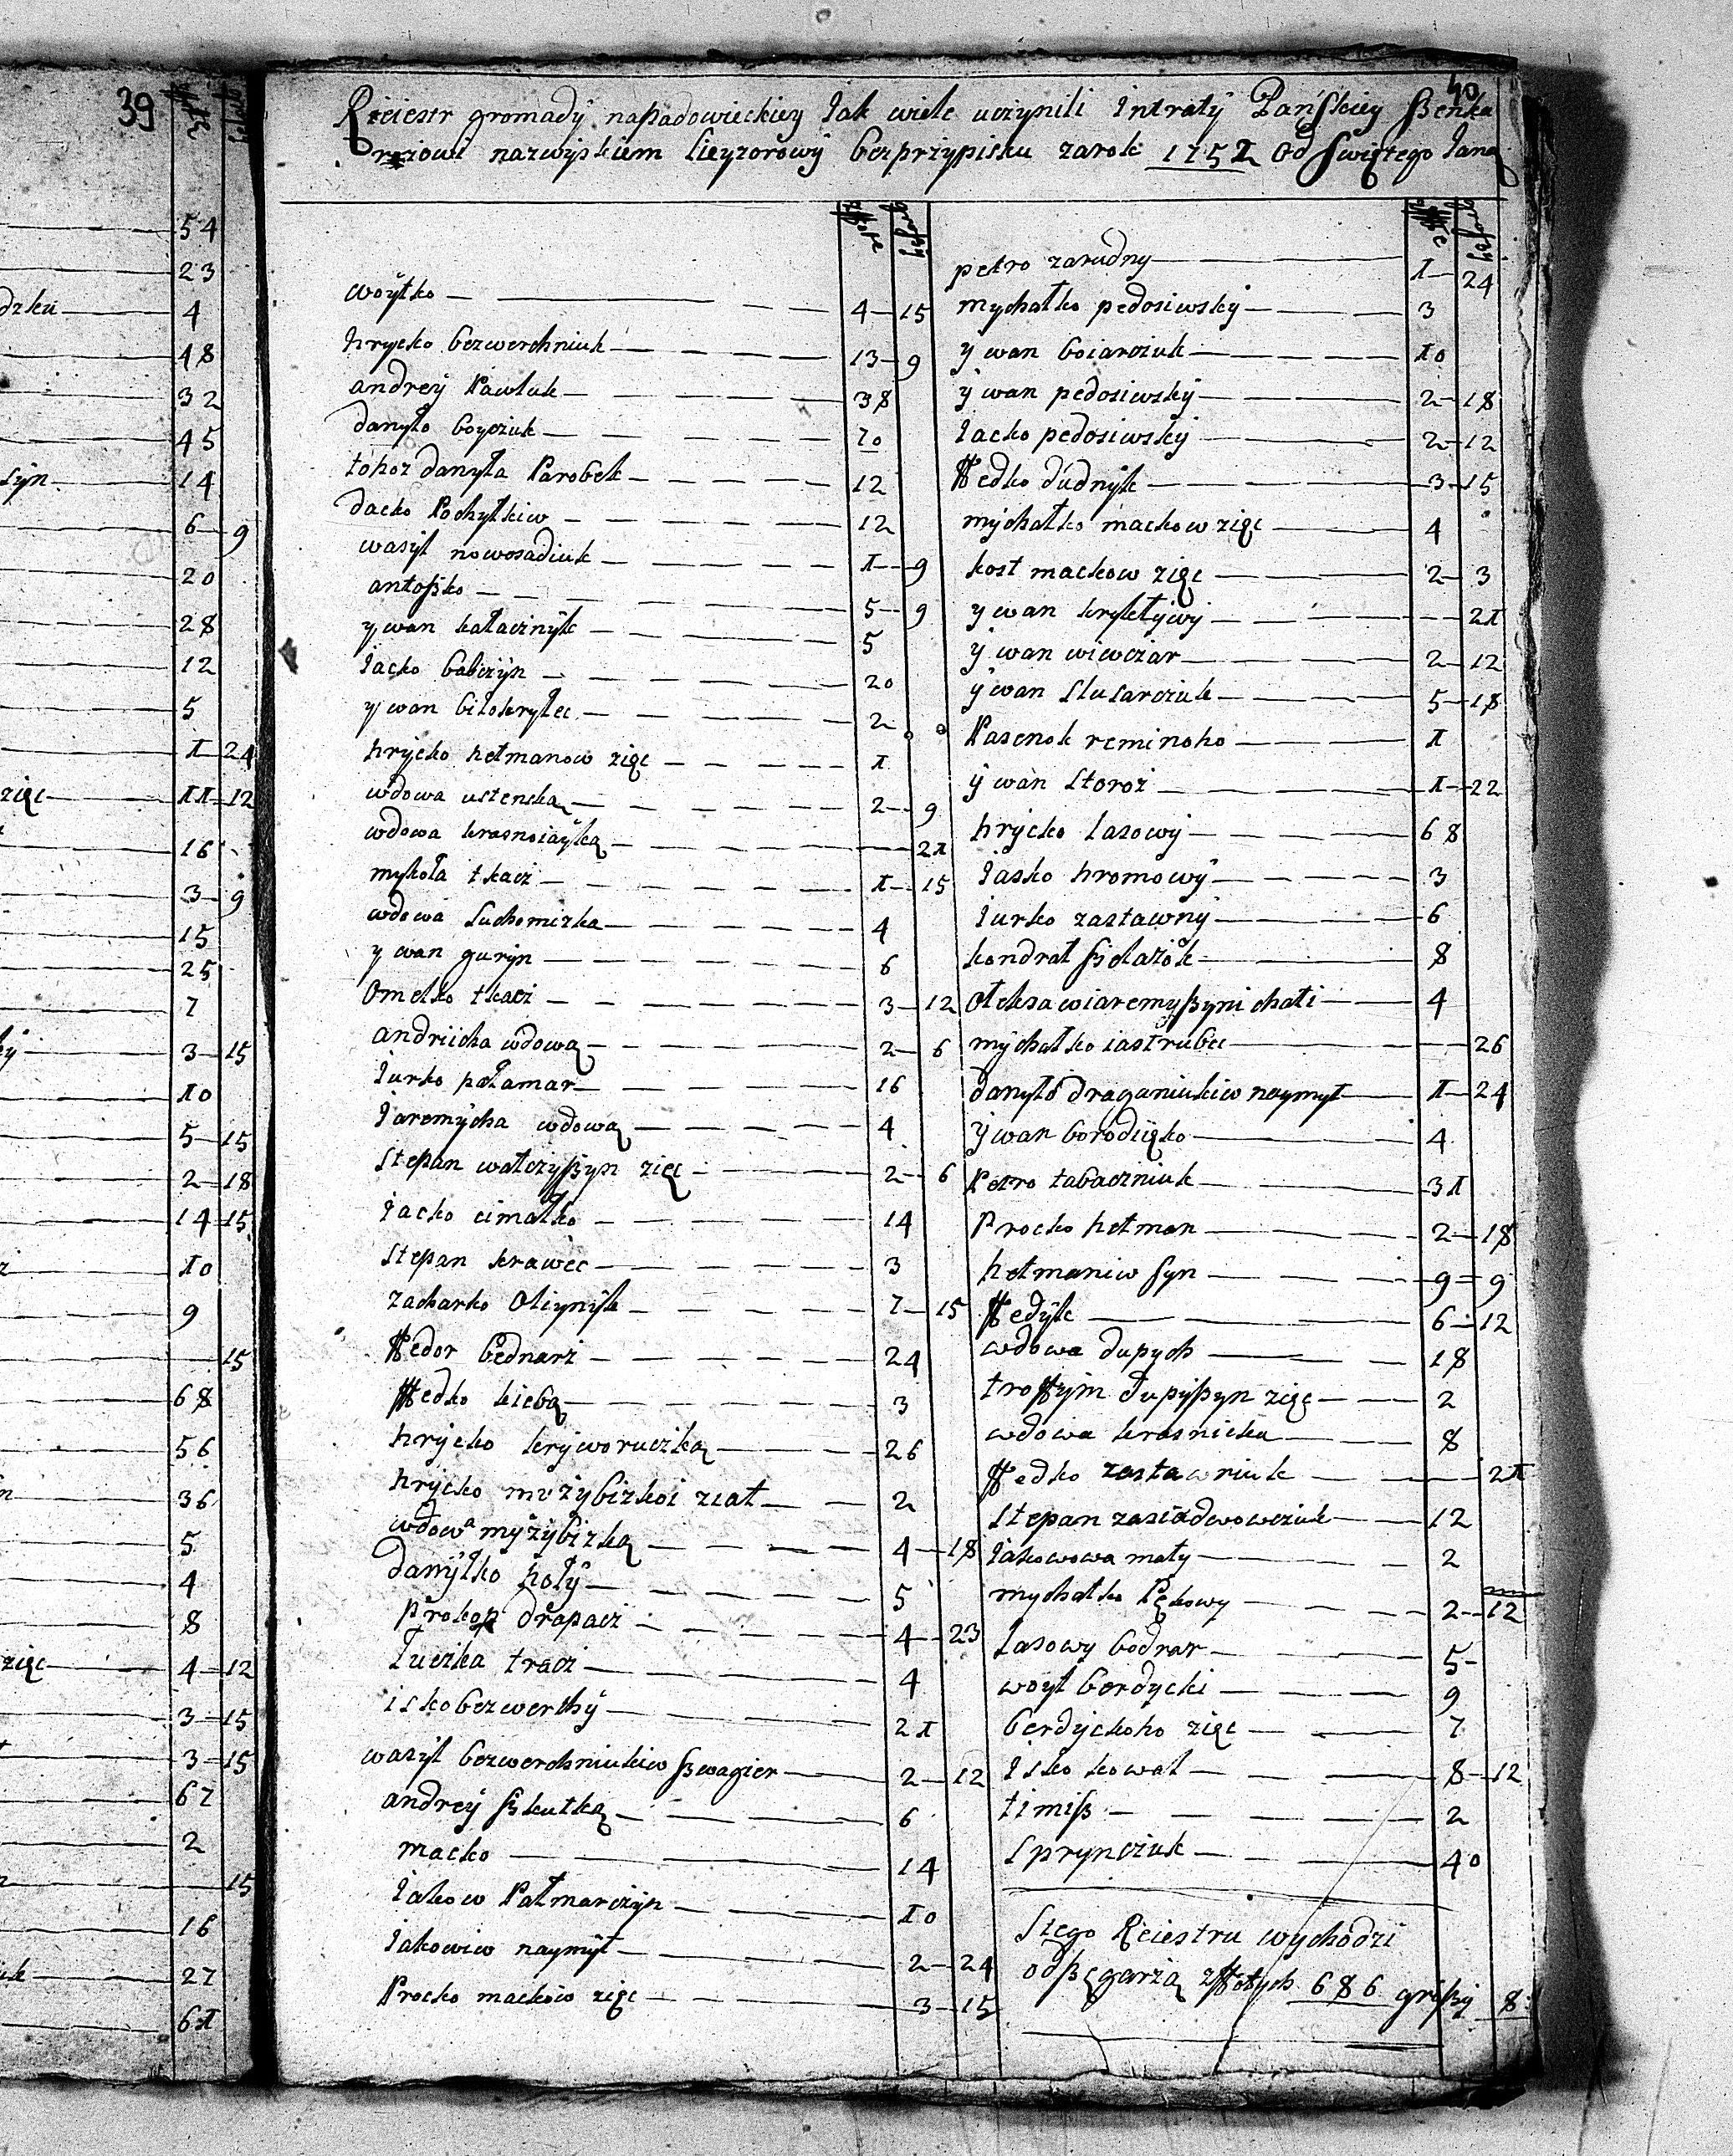 39
złote grosz
54
23
dzku 4
48
32
45
syn 14
6 9
20
28
12
5
1 24
zięc 11 12
16
3 9
15
25
7
3 15
10
5 15
2 18
14 15
10
9
15
68
56
36
5
4
8
zięc 4 12
3 15
3 15
67
2
15
16
27
61
40
Reiestr gromady napadowieckiey Jak wiele uczynili Intraty Pańskiey Szenka
rzowi nazwyskiem Lieyzorowy bez przypisku za rok 1752 Od Swiętego Jana
złote groszy
woytko 4 15
hrycko bezwerchniuk 13 9
andrey Pawluk 38
danyło boyczuk 70
tohoż danyła Parobek 12
dacko Pochytkiw 12
wasyl nowosadiuk 1 9
antoszko 5 9
ywan kałacznyk 5
Jacko babczyn 20
ywan biłokryłec 2
hrycko hetmanow zięc 1
wdowa ustenska 2 9
wdowa krasnoiayłka 21
mykoła tkacz 1 15
wdowa suchomizka 4
ywan guryn 6
Omelko tkacz 3 12
andriicha wdowa 2 6
Jurko pałamar 16
Jaremycha wdowa 4
Stepan wałczyszyn zięc 2 6
Jacko cimałko 14
Stepan krawec 3
zacharko Oliynyk 7 15
ffedor bednarz 24
ffedko kieba 3
hrycko kryworuczka 26
hrycko myżybizkoi ziat 2
wdowa myżybizka 4 18
danyłko hoły 5
Prokop drapacz 4 23
Łuczka tracz 4
isko bezwerthy 21
wasyl bezwerchniukiw szwagier 2 12
andrey szkutka 6
macko 14
Jakow Pałmarczyn 10
Jakowiw naymyt 2 24
Procko mackow zięc 3 15
złote groszy
petro zarudny 1 24
mychałko pedosiwsky 3
ywan boiarczuk 10
ywan pedosiwsky 2 18
Jacko pedosiwsky 2 12
ffedko dudnyk 3 15
mychałko mackow zięc 4
kost mackow zięc 2 3
ywan kryletywy 21
ywan wiwczar 2 12
ywan slusarczuk 5 18
Pasenok reminoho 1
ywan storoż 1 22
hrycko lasowy 68
Jasko hromowy 3
Jurko zastawny 6
kondrat szelażok 8
Ołeksa w iaremyszyni chati 4
mychałko iastrubec 26
danyło draganiukiw naymyt 1 24
ywan borodięko 4
Petro tabaczniuk 31
Procko hetman 2 18
hetmaniw syn 9 9
ffedyk 6 12
wdowa dupych 18
troffym dupyszyn zięc 2
wdowa krasnicka 8
ffedko zastawniuk 21
Stepan zasiadwowcziuk 12
Jakowowa maty 2
mychałko Pękowy 2 12
Lasowy bodnar 5
woyt berdycki 9
berdyckoho zięc 7
Isko kowal 8 12
timisz 2
Sprynczuk 40
S tego Reiestru wychodzi
od szęgarza złłotych 686 groszy 8